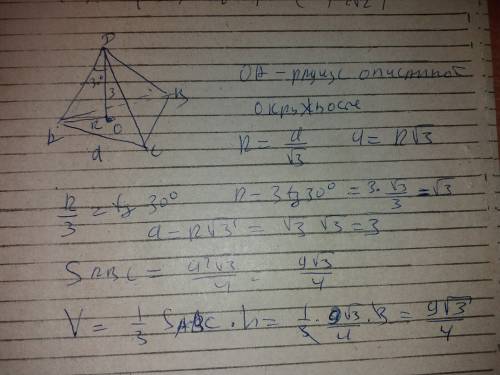 D
30°
3
B
A
R
O
a
C
OA - радиус описанной
окружности
R = a/√3 a = R√3
R/3 = tg 30° R = 3tg30° = 3·√3/3 = √3
a = R√3 = √3 √3 = 3
SABC = a²√3/4 = 9√3/4
V = 1/3 SABC · h = 1/3 · 9√3/4 · 3 = 9√3/4